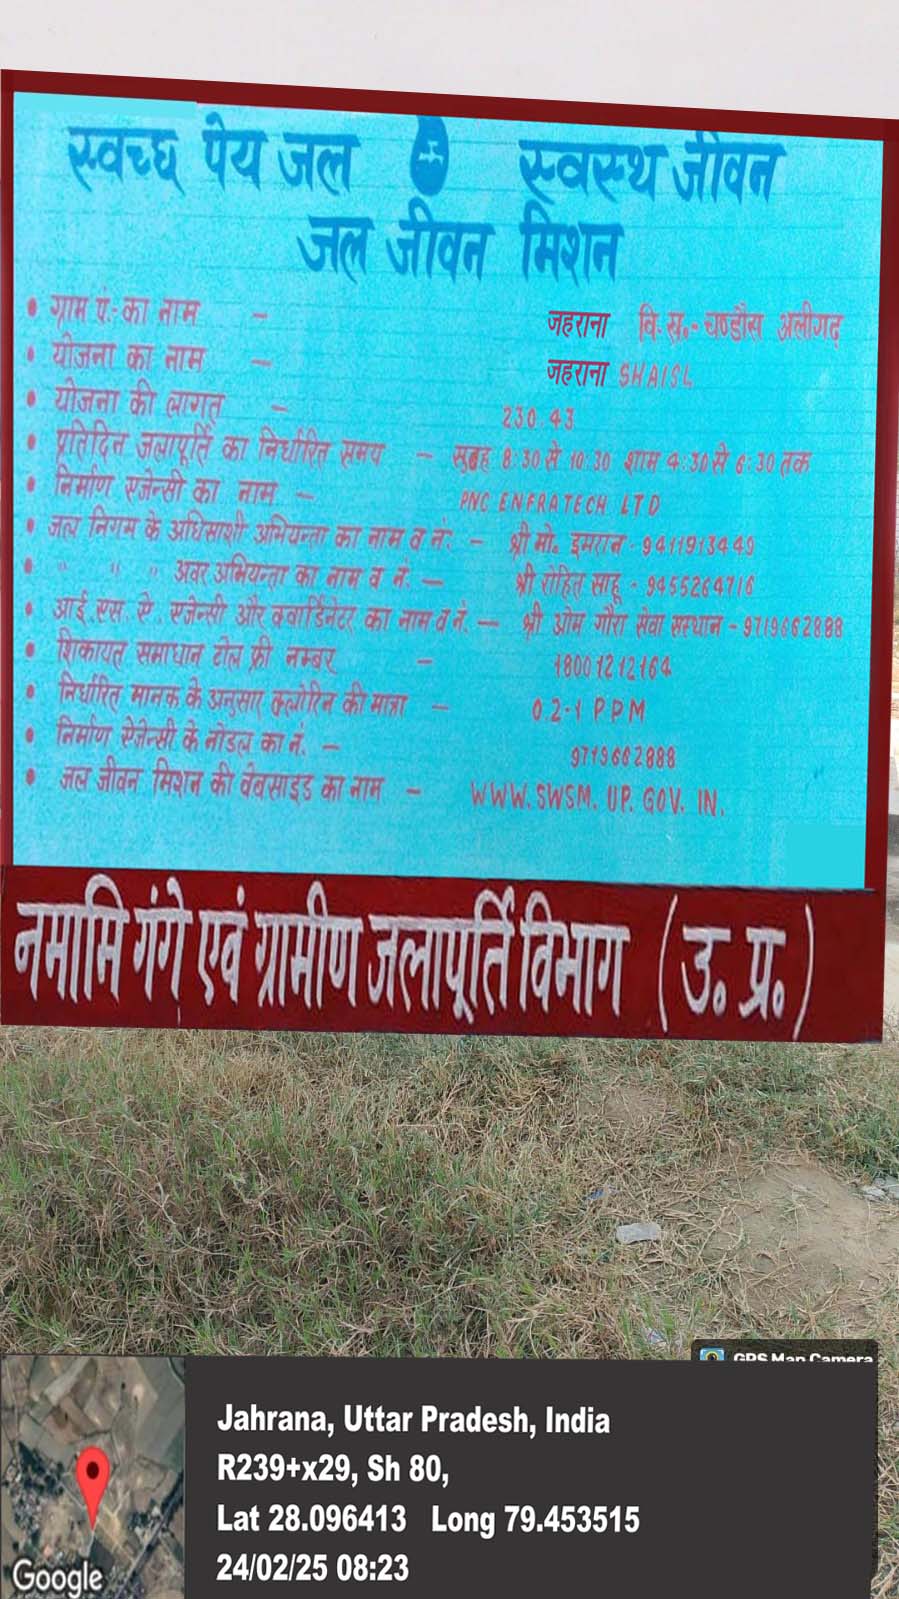 स्वच्छ पेय जल स्वस्थ जीवन
जल जीवन मिशन
• ग्राम पं.-का नाम - जहराना वि.ख.-चण्डौस अलीगढ़
• योजना का नाम - जहराना SHAISL
• योजना की लागत - 230.43
• प्रतिदिन जलापूर्ति का निर्धारित समय - सुबह 8:30 से 10:30 शाम 4:30 से 6:30 तक
• निर्माण एजेन्सी का नाम - PNC ENFRATECH LTD
• जल निगम के अधिसाशी अभियन्ता का नाम व नं. - श्री मो. इमरान - 9411913449
• " " " अवर अभियन्ता का नाम व नं. - श्री रोहित साहू - 9455264716
• आई.एस.ऐ. एजेन्सी और क्वार्डिनेटर का नाम व नं. - श्री ओम गौरा सेवा संस्थान - 9719662888
• शिकायत समाधान टोल फ्री नम्बर - 18001212164
• निर्धारित मानक के अनुसार क्लोरिन की मात्रा - 0.2-1 PPM
• निर्माण ऐजेन्सी के नोडल का नं. - 9719662888
• जल जीवन मिशन की वेबसाइड का नाम - WWW.SWSM.UP.GOV.IN.
नमामि गंगे एवं ग्रामीण जलापूर्ति विभाग (उ. प्र.)
GPS Map Camera
Jahrana, Uttar Pradesh, India
R239+x29, Sh 80,
Lat 28.096413 Long 79.453515
24/02/25 08:23
Google